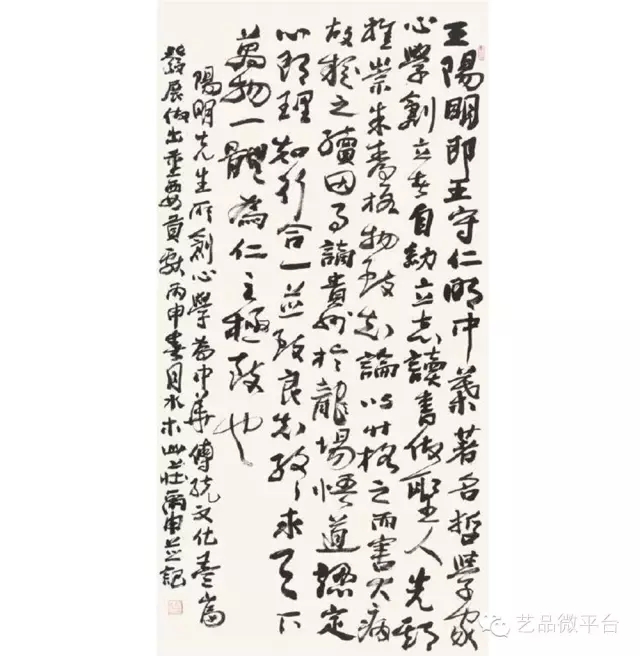 王陽明即王守仁明中葉著名哲學家
心學創立者自幼立志讀書做聖人先
推崇朱熹格物致知論以竹格之而害大病
故疑之續因事謫貴州於龍場悟道認定
心即理知行合一並致良知終求天下
萬物一體為仁之極致也
陽明先生所創心學為中華傳統文化豐富
發展做出重要貢獻丙申春月水木山莊並記
艺品微平台